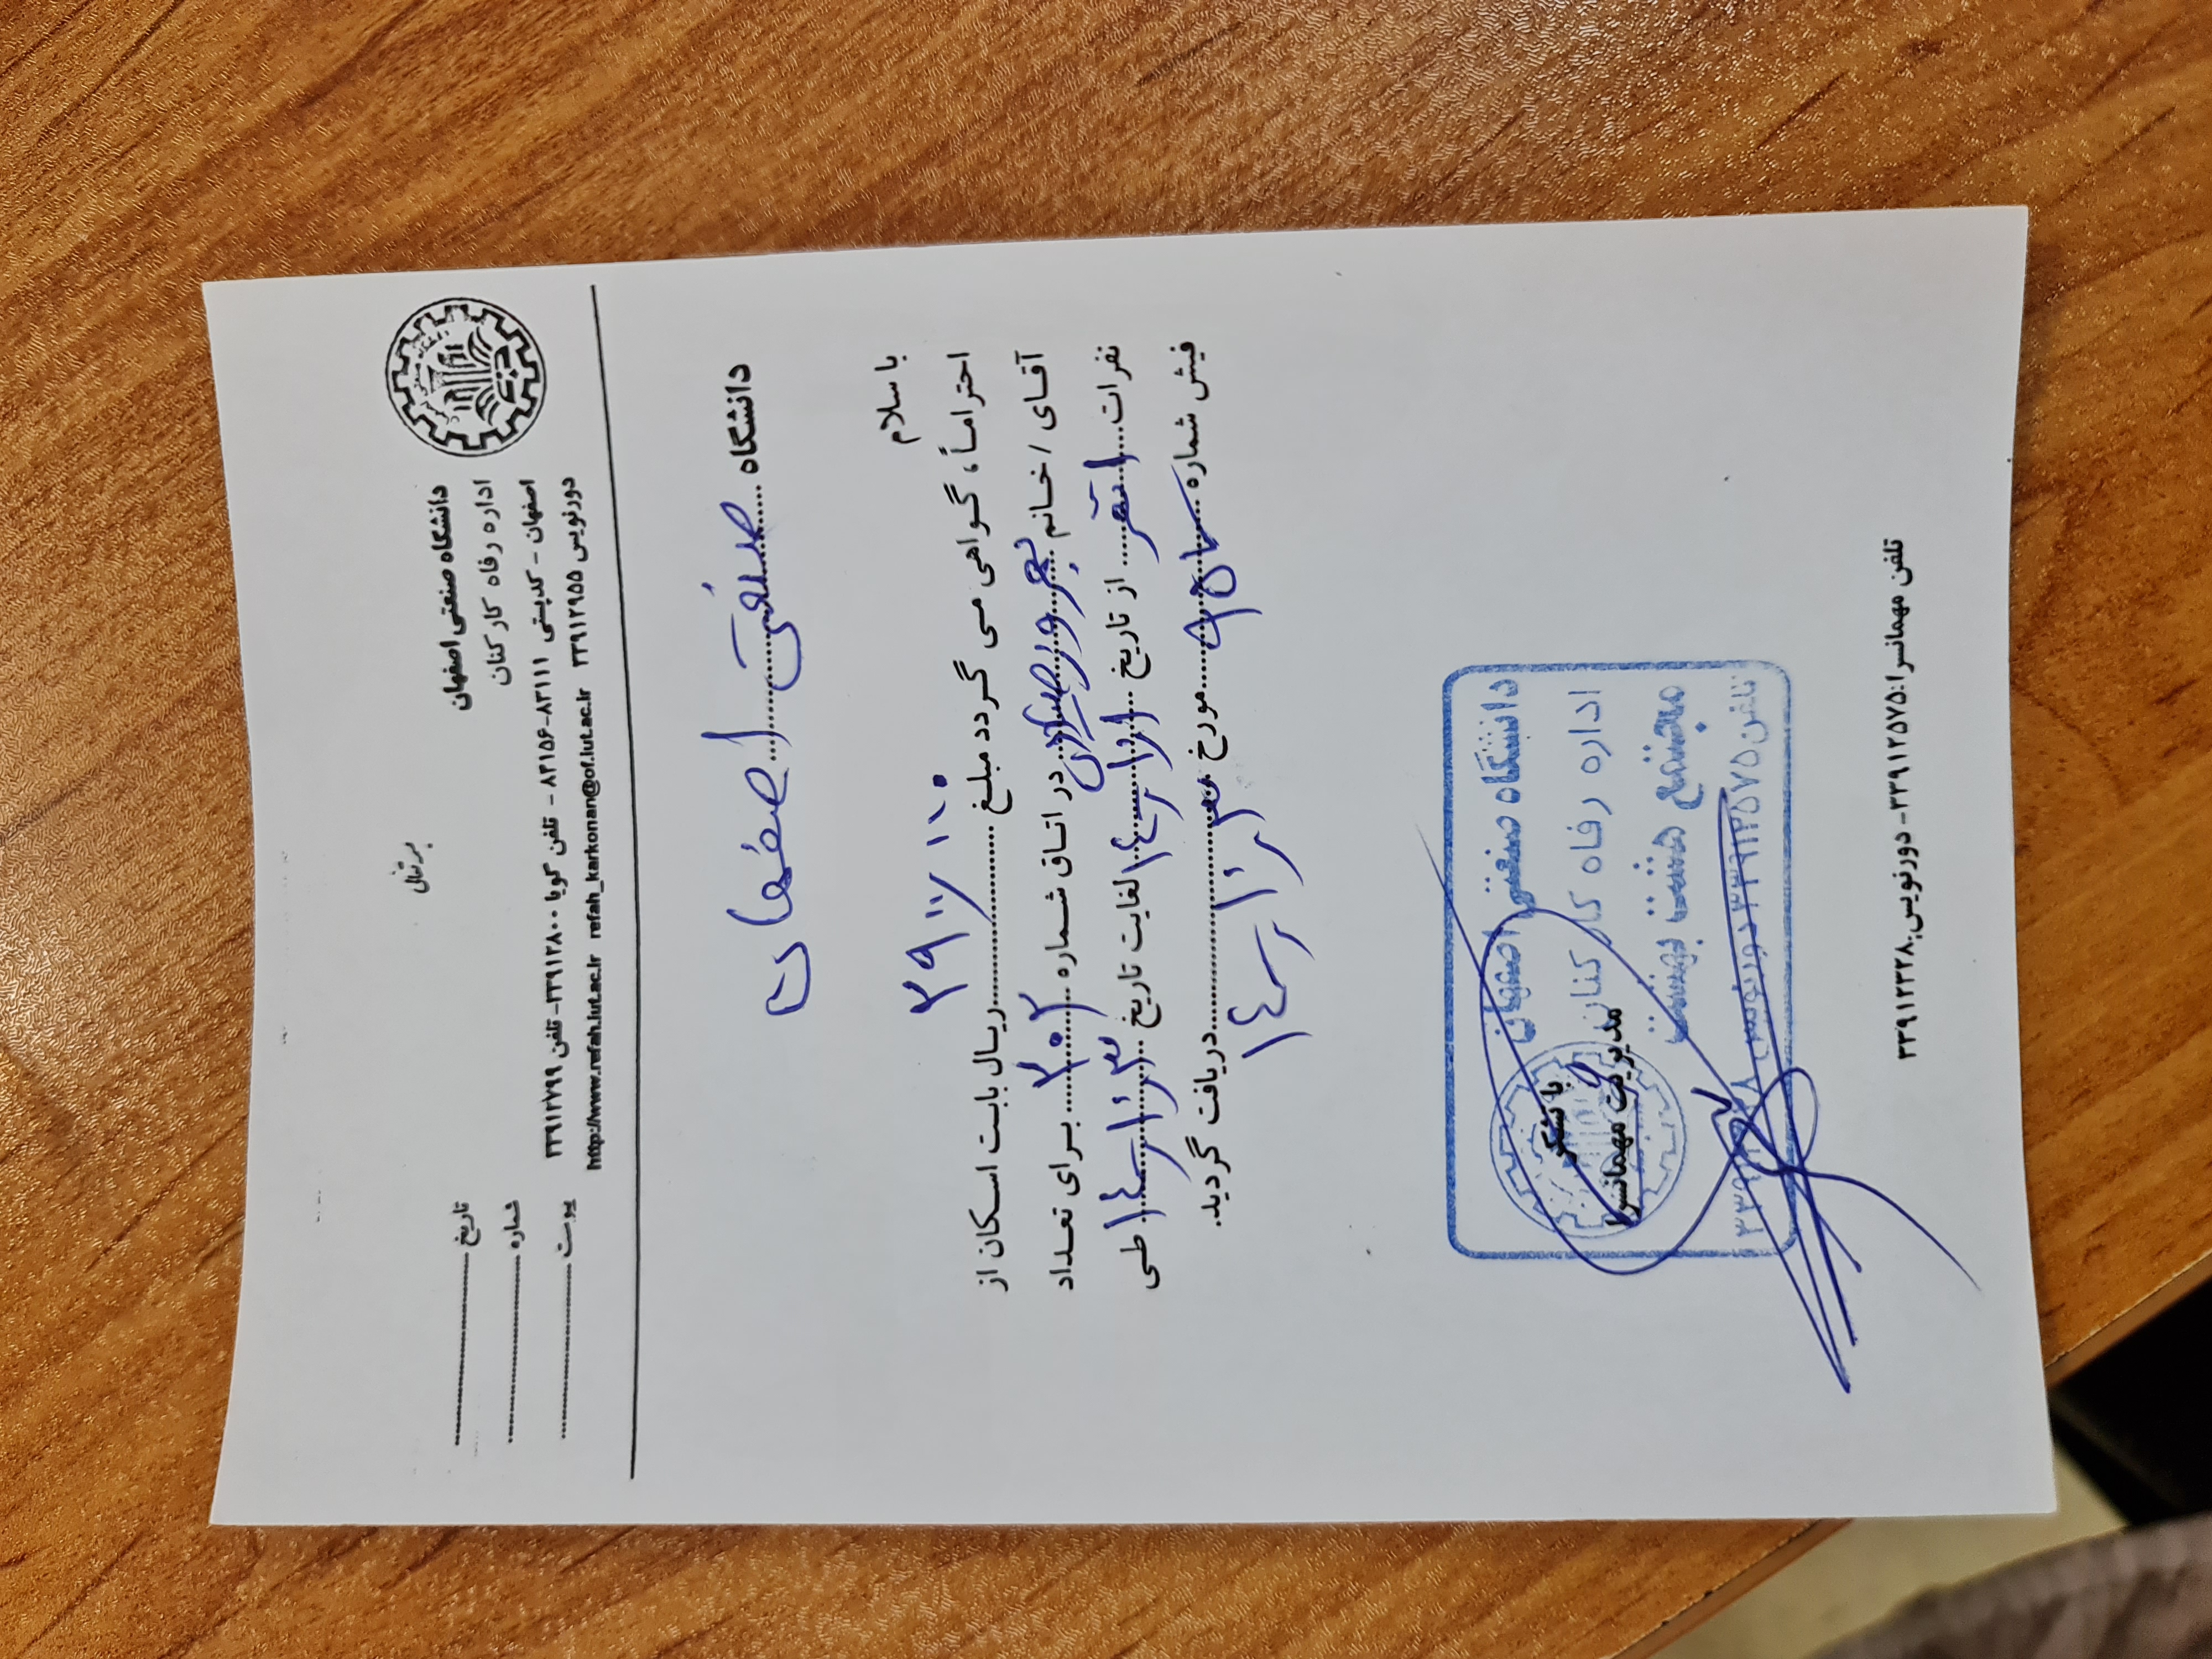 بسمه تعالی
دانشگاه صنعتی اصفهان
اداره رفاه کارکنان
اصفهان - کدپستی ۸۳۱۱۱-۸۴۱۵۶ - تلفن گویا ۳۳۹۱۲۸۰۰- تلفن ۳۳۹۱۲۷۹۹
دورنویس ۳۳۹۱۲۹۵۵ refah_karkonan@of.iut.ac.ir http://www.refah.iut.ac.ir
تاریخ
شماره
پیوست
دانشگاه صنعتی اصفهان
با سلام
احتراماً ، گواهی می گردد مبلغ ریال بابت اسکان از
آقای / خانم بهروز در اتاق شماره ۳۰۲ برای تعداد
نفرات ۱ نفر از تاریخ لغایت تاریخ طی
فیش شماره مورخ دریافت گردید.
با تشکر
مدیریت مهمانسرا
دانشگاه صنعتی اصفهان
اداره رفاه کارکنان
مجتمع هشت بهشت
تلفن ۳۳۹۱۲۵۷۵ دورنویس
تلفن مهمانسرا:۳۳۹۱۲۵۷۵- دورنویس:۳۳۹۱۲۳۲۸